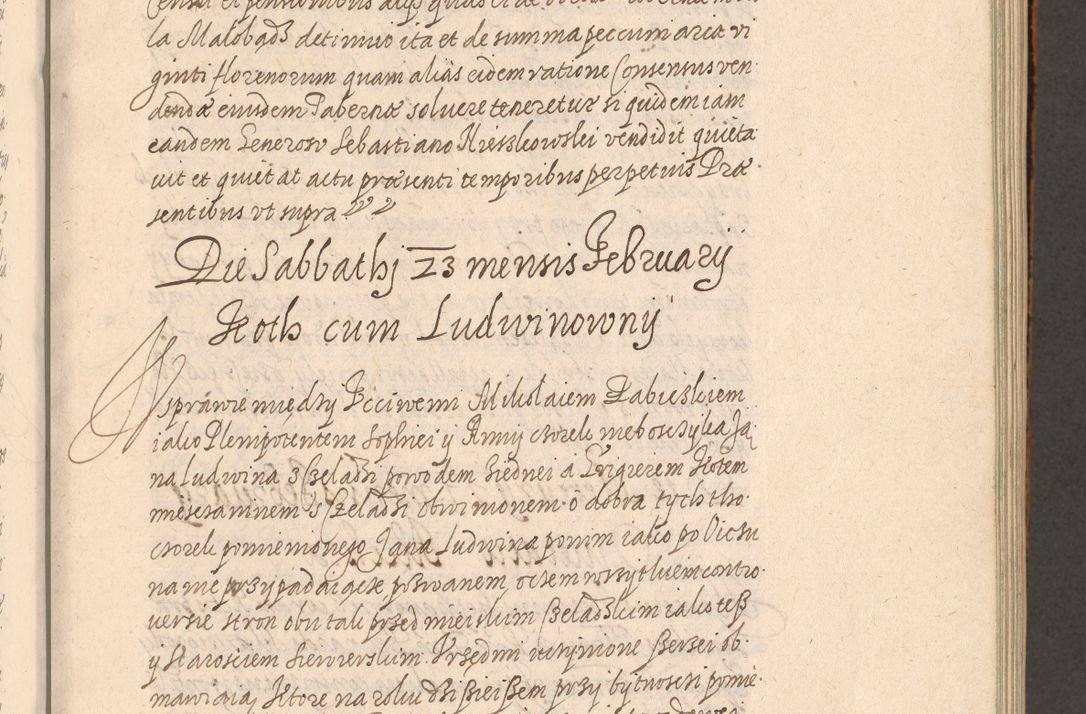 la Malobądz detinuio ita et de summa peccumaria vi
ginti florenorum quam aliàs eidem ratione Consensus ven
dendæ eiusdem Tabernæ soluere teneretur siquidem iam
eandem Generoso Sebastiano Kiesskowskei vendidit quieta
uit et quietat actu præsenti temporibus perpetuis Præ
sentibus vt supra
Die Sabbathj 23 mensis February
Koth cum Ludwinowny
W sprawie między Vcciwemi Mikolaiem Zabieskiem
iako Plenipotentem Sophiei y Anny czorek nieboszyka Ja
na Ludwina z Czeladzi powodem Jiednei a Grzgierem Kotem
miesczaninem s Czeladzi obwinionem o dobra tych tho
czorek pomienionego Jana Ludwina ponim iako po Oiczu
na nie przypadaiącze pozwanem, o czem wszytkiem contro
versie stron obu tak przed mieiskim Czeladzkim iako teß
y Starosciem Siewierskim Przedmi uczynione ßerzei ob
mawiaią, Ktore na roku dzisieißem przy bytnosczi pomie